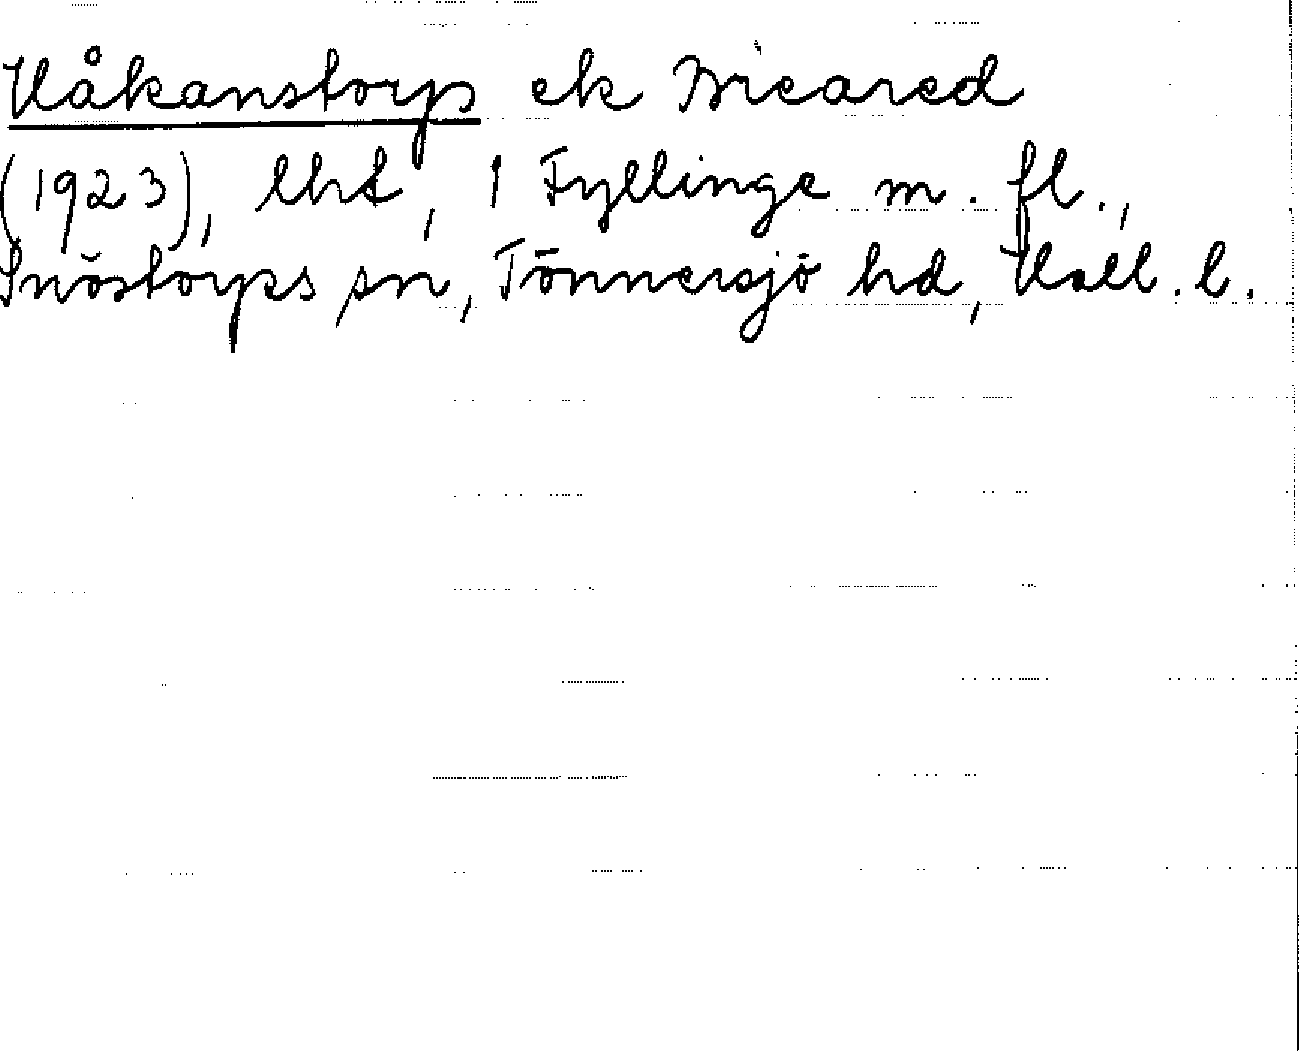 Håkanstorps ek Bricared
(1923), lht, 1 Fyllinge m. fl.,
Snöstorps sn, Tönnersjö hd, Hall. l.